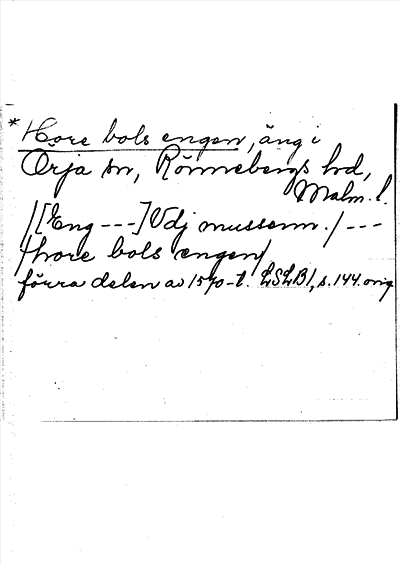 * Hore bols engen, äng i
Örja sn, Rönnebergs hd,
Malm. l.
/[Eng ---] Vdj mussenn./ ---
/hore bols engen/
förra delen av 1570-t. LSLB1, s. 144. orig